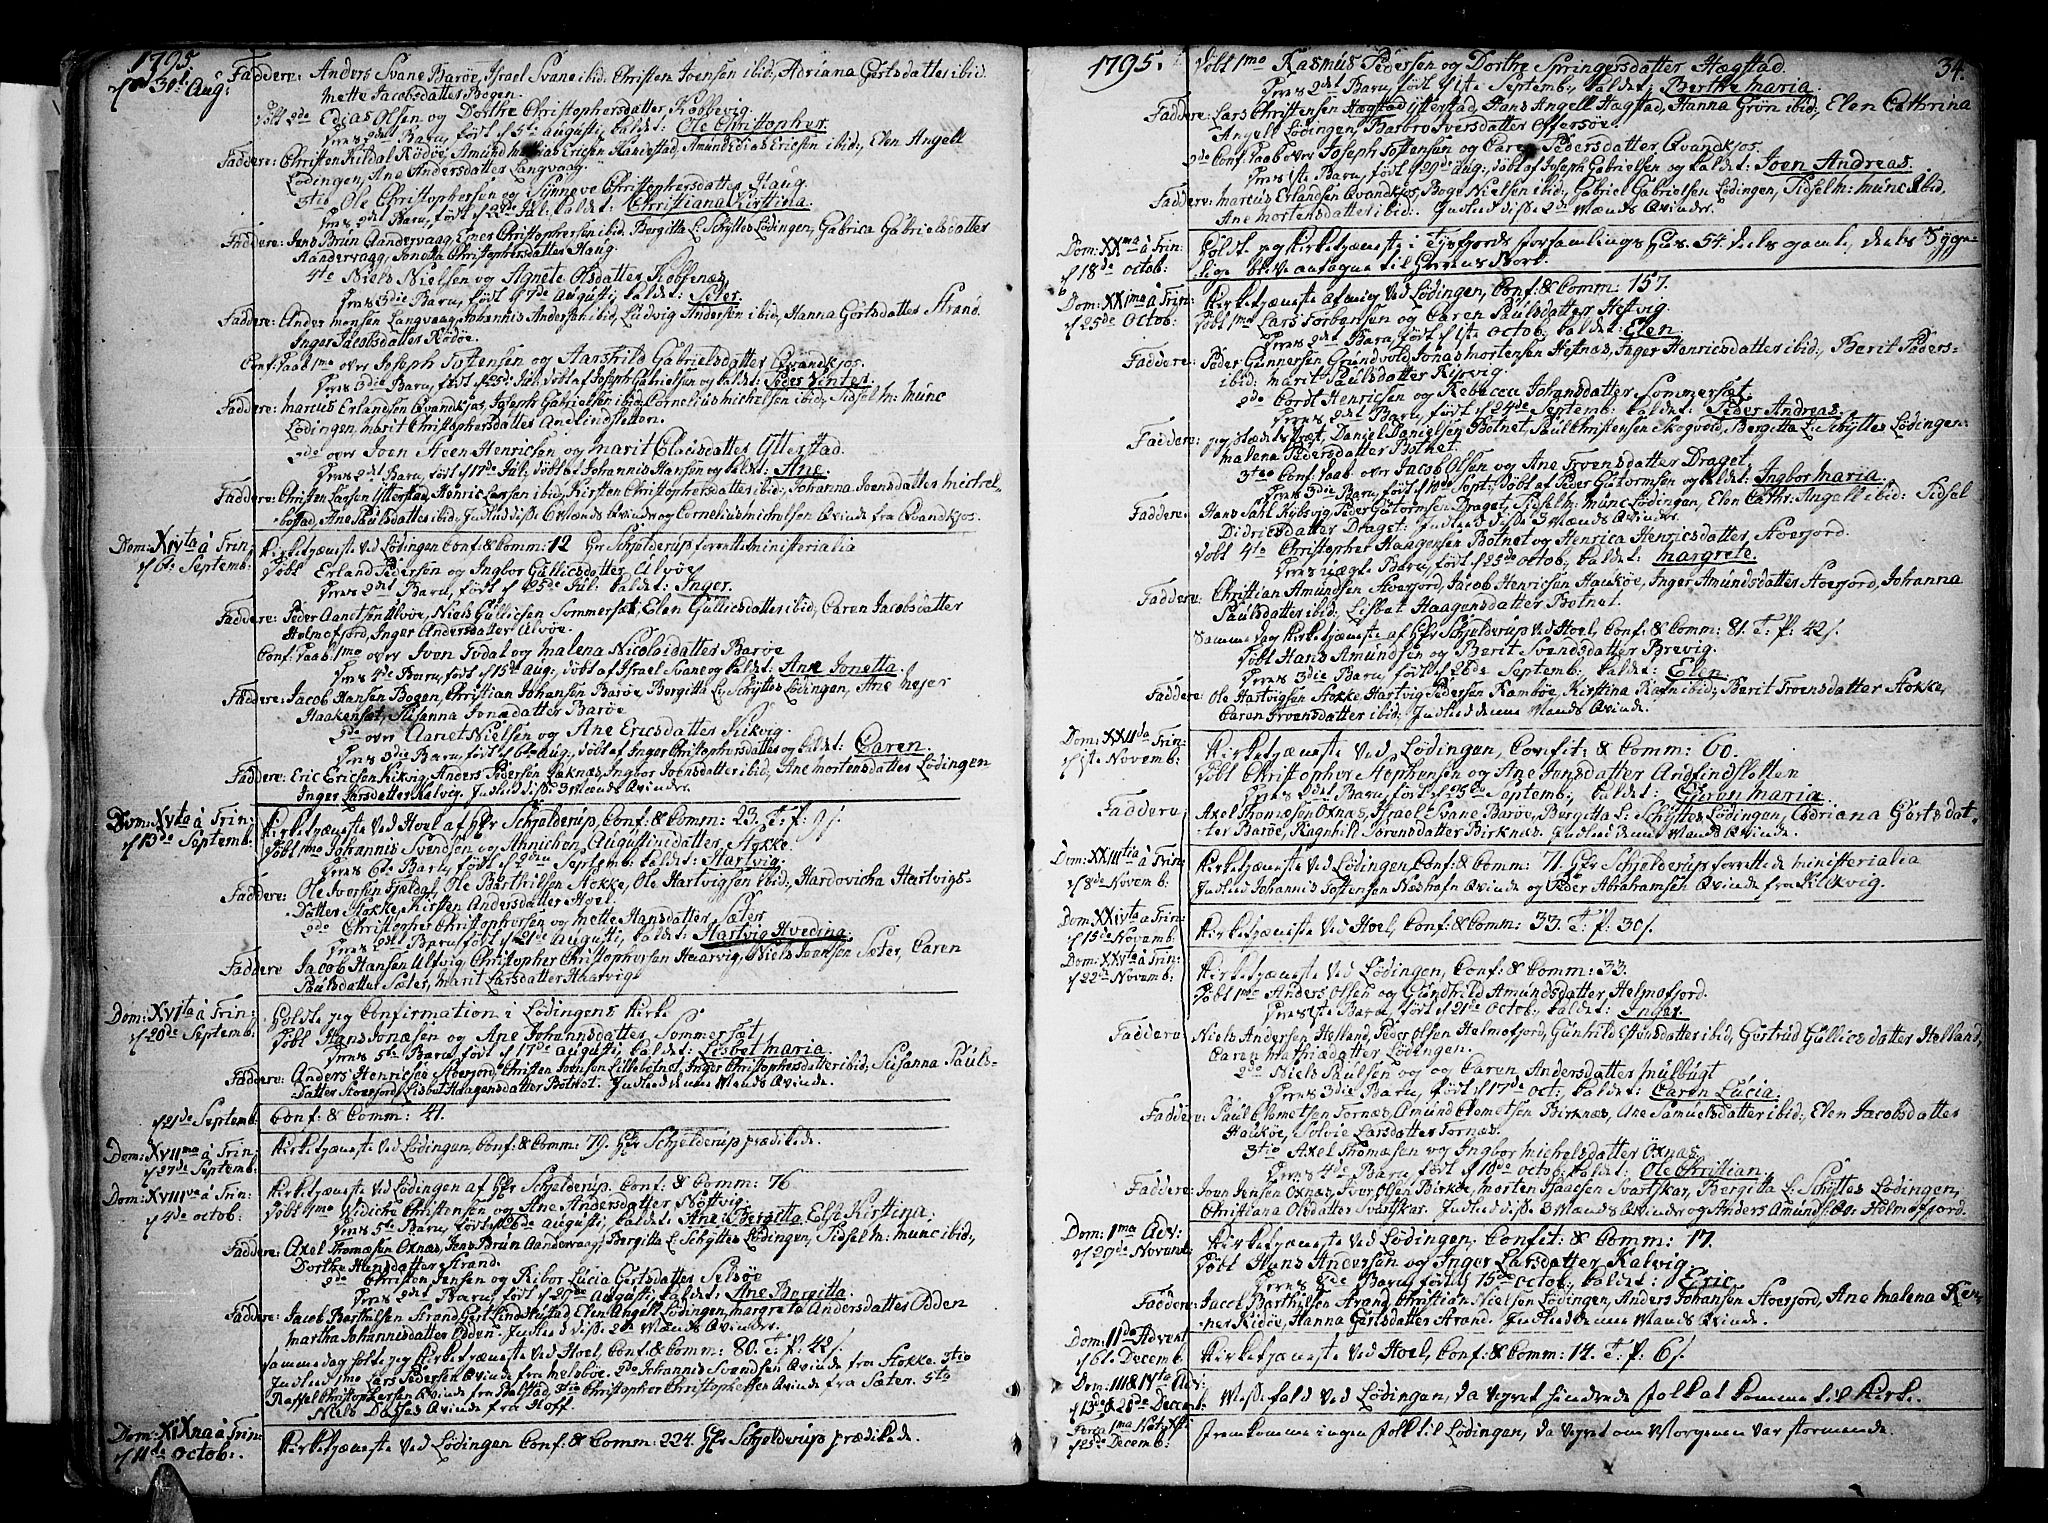 1795.
d 30t Aug:
Faddere: Anders Svane Barøe, Israel Svane ibid; Christen Joensen ibid; Adriana Gertsdatter ibid.
Mette Jacobsdatter Bogen.
Døbt 2de Edias Olsen og Dorthe Christophersdatter, Kobbevig.
Deres 2det Barn, født d 5te augusti, kaldet: Ole Christopher.
Faddere: Christen Kildal Rödöe, Amund Ericsen Hanestad, Amund Edias Ericsen ibid; Elen Angell
Lödingen, Ane Andersdatter Langvaag.
3tio Ole Christophersen og Synneve Christophersdatter Haug.
Deres 2det Barn, født d Jul: kaldet: Christiana Kirstina.
Faddere: Jens Brun Aandervaag, Christophersen ibid: Bergitta L: Schyttes Lödingen, Gabrica Gabrielsdatter
Aandervaag, Jonetta Christophersdatter Haug
4to Niels Nielsen og Agnete Olsdatter Kobbenæs
Deres 3die Barn, født d 7de Augusti, kaldet: Peter.
Faddere: Ander Monsen Langvaag, Johannis Andersen ibid, Ludvig Andersen ibid, Hanna Gertsdatter Strand.
Inger Jacobsdatter Rödöe.
Conf: Daab 1mo over Joseph Toftensen og Aarshild Gabrielsdatter Qvandkjos.
Deres 3die Barn, født d 25de Jul: døbt af Joseph Gabrielsen og kaldet: Peder Winter.
Faddere: Marcus Erlandsen Qvandkjos, Joseph Gabrielsen ibid; Cornelius Michelsen ibid; Sidsel M: Munc
Lödingen, Marit Christophersdatter Anefindsletten.
2do over Joen Steen Henricsen og Marit Clausdatter Ytterstad.
Deres 2det Barn, født d 17de Jul: døbt af Johannis Hansen og kaldet: Ane.
Faddere: Christen Larsen Ytterstad, Henric Larsen ibid, Kirsten Christophersdatter ibid; Johanna Joensdatter Michel-
bostad, Ane Paulsdatter ibid; Indled disse 6 Mænds Qvinder og Cornelius Michelsen Qvinde fra Qvandkjos.
Dom: XIVta à Trin:
d 6te Septemb:
Kirketjæneste ved Lödingen Conf: & Comm: 12 Hr Schjelderup forrettede ministerialia
Døbt Erland Pedersen og Ingbor Gullicsdatter Alvøe
Deres 2det Barn, født d 25de Jul: kaldet: Inger.
Faddere: Peder Aanetsen Alvøe, Niels Gullicsen Sommerset, Elen Gullicsdatter ibid; Caren Jacobsdatter
Holmofjord, Inger Andersdatter Alvøe.
Conf: Daab 1mo over Iver Tvdal og Malena Nicolaidatter Barøe
Deres 4de Barn, født d 15de Aug: døbt af Israel Svane og kaldet: Ane Jonetta.
Faddere: Jacob Hansen Bogen, Christian Johansen Barøe, Bergitta L: Schyttes Lödingen, Ane Mejer
Haakenset, Susanna Jonædatter Barøe
2do over Aanet Nielsen og Ane Ericsdatter Kikvig.
Deres 3die Barn, født d 6te Aug. døbt af Inger Christophersdatter og kaldet: Caren.
Faddere: Eric Ericsen Kikvig, Anders Pedersen Saknæs, Ingbor Joensdatter ibid; Ane Mortensdatter Lödingen
Inger Larsdatter Kalvig. Indled disse 3 Mænds Qvinder.
Dom: XVta à Trin:
d 13de Septemb:
Kirketjæneste ved Hoel af Hr Schjelderup, Conf: & Comm: 23. T: P: 91/.
Døbt 1mo Johannis Svendsen og Athnichen Augustinidatter, Stokke.
Deres 6te Barn, født d 2den Septemb: kaldet: Hartvig.
Faddere: Ole Iversen Fjeldal, Ole Barthilsen Stokke, Ole Hartvigsen ibid; Hardovicha Hartvigs-
datter Stokke, Kirsten Andersdatter Hoel.
2do Christopher Christophersen og Mette Hansdatter Sæter
Deres 2det Barn, født d 21de Augusti, kaldet: Hartvig Hveding.
Faddere Jacob Hansen Ulfvig, Christopher Christophersen Haarvig, Niels Sæter, Caren
Paulsdatter Sæter, Marit Larsdatter Haarvig
Dom: XVIta à Trin:
d 20de Septemb:
Holdt jeg Confirmation i Lödingens Kirke
Døbt Hans Jonæsen og Ane Johannsdatter Sommerset
Deres 5te Barn, født d 17de Augusti, kaldet: Lisbet Maria.
Faddere: Anders Henricsen Stoerjord, Christen Joensen Lillebotnet, Inger Christophersdatter ibid; Susanna Pauls-
datter Stoerjord, Lisbet Haagensdatter Botnet. Indled denne Mands Qvinde.
d 21de Septemb
Conf: & Comm: 41.
Dom: XVIIma à Trin:
d 27de Septemb:
Kirketjæneste ved Lödingen, Conf: & Comm: 79. Hr Schjelderup prædikede.
Dom: XVIIIva à Trin:
d 4de Octob:
Kirketjæneste ved Lödingen af Hr Schjelderup, Conf: & Comm: 76.
Døbt 1mo Didiche Christensen og Ane Andersdatter Nöttvig.
Deres 5te Barn, født d 26de Augusti, kaldet: Ane Bergitta Else Kirstina.
Faddere: Axel Thomæsen Oxnæs, Jens Brun Aandervaag, Bergitta L: Schyttes Lödingen, Sidsel M: Munc ibid;
Dorthe Hansdatter Strand.
2do Christen Jensen og Ribor Lucia Gertsdatter Selsöe
Deres 2det Barn, født d 27de Augusti, kaldet: Ane Bergitta.
Faddere: Jacob Barthilsen Strand, Gert Lind Rustad, Elen Angell Lödingen, Margreta Andersdatter Odden
Martha Johannisdatter Odden. Indled disse 2de Mænds Qvinder.
Samme dag holte jeg Kirketjæneste ved Hoel, Conf: & Comm: 80. T: P: 42/.
Indled 1mo Lars Pedersen Qvinde fra Melsböe. 2do Johannis Svendsen Qvinde fra Stokke. 3tio
Raffael Christophersen Qvinde fra Balstad, 4to Christopher Christophersen Qvinde fra Sæter. 5to
Niels Qvinde fra Hoff.
Dom: XIXna à Trin:
d 11te Octob:
Kirketjæneste ved Lödingen Conf: & Comm: 224. Hr Schjelderup prædikede.
1795.
34.
Døbt 1mo Rasmus Pedersen og Dorthe Springersdatter Hægstad.
Deres 2det Barn, født d 1ste Septemb: kaldet: Berthe Maria.
Faddere: Lars Christensen Hægstad, Hans Angell Hægstad, Hanna Grøn ibid; Elen Cathrina
Angel Lödingen, Barbro Iversdatter Offersöe.
2do Conf: Daab over Joseph Toftensen og Caren Pedersdatter Qvandkjos.
Deres 1ste Barn, født d 29de Aug: døbt af Joseph Gabrielsen og kaldet: Joen Andreas.
Faddere: Marcus Erlandsen Qvandkjos, Boge Nielsen ibid; Gabriel Gabrielsen Lödingen, Sidsel M: Munc ibid,
Ane Mortensdatter ibid: Indled disse 2de Mænds Qvinder.
Dom: XXma à Trin:
d 18de Octob:
Holdt jeg Kirketjæneste i Tysfjords forsamlings Huus. 54 deels gamle, deels Syge-
lige bleve antagne til Herrens Bord.
Dom: XXIma à Trin:
d 25de Octob:
Kirketjæneste af mig ved Lödingen, Conf: & Comm: 157.
Døbt 1mo Lars Torbensen og Caren Paulsdatter Heftvig.
Deres 2det Barn, født d 1ste Octob: kaldet: Elen.
Faddere: Peder Gunnersen Grundvold, Jonas Mortensen Heftnæs, Inger Henricsdatter ibid; Berit Peders-
ibid; Marit Paulsdatter Kjervig.
2do Cordt Henricsen og Rebecca Johansdatter Sommerset.
Deres 2det Barn, født d 24de Septemb: kaldet: Peder Andreas.
Faddere: Daniel Danielsen Botnet, Paul Christensen Skogvold, Bergitta L: Schyttes Lödingen:
Malena Pedersdatter Botnet.
3tio Conf: Daab over Jacob Olsen og Ane Troensdatter Draget,
Deres 3die Barn, født d 10de Sept: døbt af Peder Gutormsen og kaldet: Ingbor Maria.
Faddere: Hans Dahl Rybsvig, Peder Gutormsen Draget, Sidsel M: Munc Lödingen, Elen Cathr: Angell ibid: Sidsel
Didricsdatter Draget: Indled disse 3 Mænds Qvinder.
Døbt 4to Christopher Haagensen Botnet og Henrica Henricsdatter, Stoerjord.
Deres uægte Barn, født d 23de Octob: kaldet: Margrete.
Faddere: Christian Amundsen Stoerjord, Jacob Henricsen Haukøe, Inger Amundsdatter Stoerjord, Johanna
Paulsdatter ibid: Lisbet Haagensdatter Botnet.
Samme dag Kirketjæneste af Hr Schjelderup ved Hoel, Conf: & Comm: 81. T: P: 42/.
Døbt Hans Amundsen og Berit Svendsdatter Brevig.
Deres 3die Barn, født d 28de Septemb: kaldet: Elen.
Faddere: Ole Hartvigsen Stokke, Hartvig Pedersen Ramböe, Kirstina Rafn ibid; Berit Troensdatter Stokke,
Caren Troensdatter ibid; Indled denne Mands Qvinde.
Dom: XXIIda Trin:
d 1ste Novemb:
Kirketjæneste ved Lödingen, Confit: & Comm: 60.
Døbt Christopher Stephensen og Ane Jensdatter Andfindsletten
Deres 2det Barn, født d 25de Septemb; kaldet: Guren Maria
Faddere: Axel Thomæsen Oxnæs, Israel Svane Barøe, Bergitta L: Schyttes Lödingen, Adriana Gertsdat-
ter Barøe, Ragnhilt Sörensdatter Birknæs. Indled denne Mands Qvinde.
Dom: XXIIItia à Trin:
d 8de Novemb:
Kirketjæneste ved Lödingen Conf: & Comm: 71. Hr Schjelderup forrettede ministerialia
Indled Johannis Toftensen Næshafn Qvinde og Peder Abrahamsen Qvinde fra Kikvig.
Dom: XXIVta à Trin:
d 15de Novemb:
Kirketjæneste ved Hoel, Conf: & Comm: 33. T: P: 30/.
Dom: XXVta à Trin:
d 22de Novemb:
Kirketjæneste ved Lödingen, Conf: & Comm: 33.
Døbt 1mo Anders Olsen og Gundhild Amundsdatter, Helmofjord.
Deres 1ste Barn, født d 21de Octob: kaldet: Inger.
Faddere: Niels Andersen Helland, Peder Olsen Helmofjord, Gunhild Estensdatter ibid; Gertrud Gullicsdatter Helland,
Caren Mathiædatter Lödingen.
2do Niels Paulsen og Caren Andersdatter Mulbugt
Deres 3die Barn, født d 17de Oct: kaldet: Caren Lucia.
Faddere: Paul Clemetsen Tornæs, Amund Clemetsen Birknæs, Ane Samuelsdatter ibid; Elen Jacobsdatter
Haukøe, Solvie Larsdatter Tornæs.
3tio Axel Thomæsen og Ingbor Michelsdatter Oxnæs
Deres 4de Barn, født d 10de Octob: kaldet: Ole Christian.
Faddere: Joen Jensen Oxnæs, Iver Olsen Birkøe, Morten Isaacsen Svartskar, Bergitta L: Schyttes Lödingen,
Christiana Olsdatter Svartskar. Indled disse 3 Mænds Qvinder og Anders Amundsøn Helmofjord.
Dom: 1ma Adv:
d 29de Novemb:
Kirketjæneste ved Lödingen, Confit: & Comm: 17.
Døbt Hans Andersen og Inger Larsdatter Kalvig.
Deres 2de Barn, født d 15de Octob: kaldet: Eric.
Faddere: Jacob Barthilsen Strand, Christian Nielsen Lödingen, Anders Johansen Stoerjord, Ane Malena Ken-
ner Ridöe, Hanna Gertsdatter Strand. Indled denne Mands Qvinde.
Dom: IIda Advent
d 6te Decemb:
Kirketjæneste ved Hoel, Conf: & Comm: 14. T: P: 6/.
Dom: III & IVta Adv:
d 13de & 20de Decemb:
Messefald ved Lödingen, da Vejret hindrede folk at komme til Kirke.
Feria 1ma Nat: Xsti
d 25de Decemb:
Fremkomme ingen folk til Lödingen, da Vejret om Morgenen var stormende.